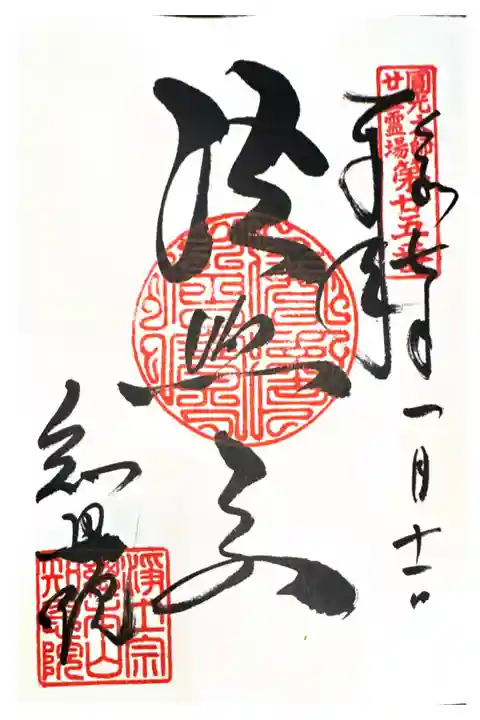 圓光大師
廿五霊場第廿五番
奉拝
令和七年一月十一日
法然上人
知恩院
淨土宗
總本山
知恩院